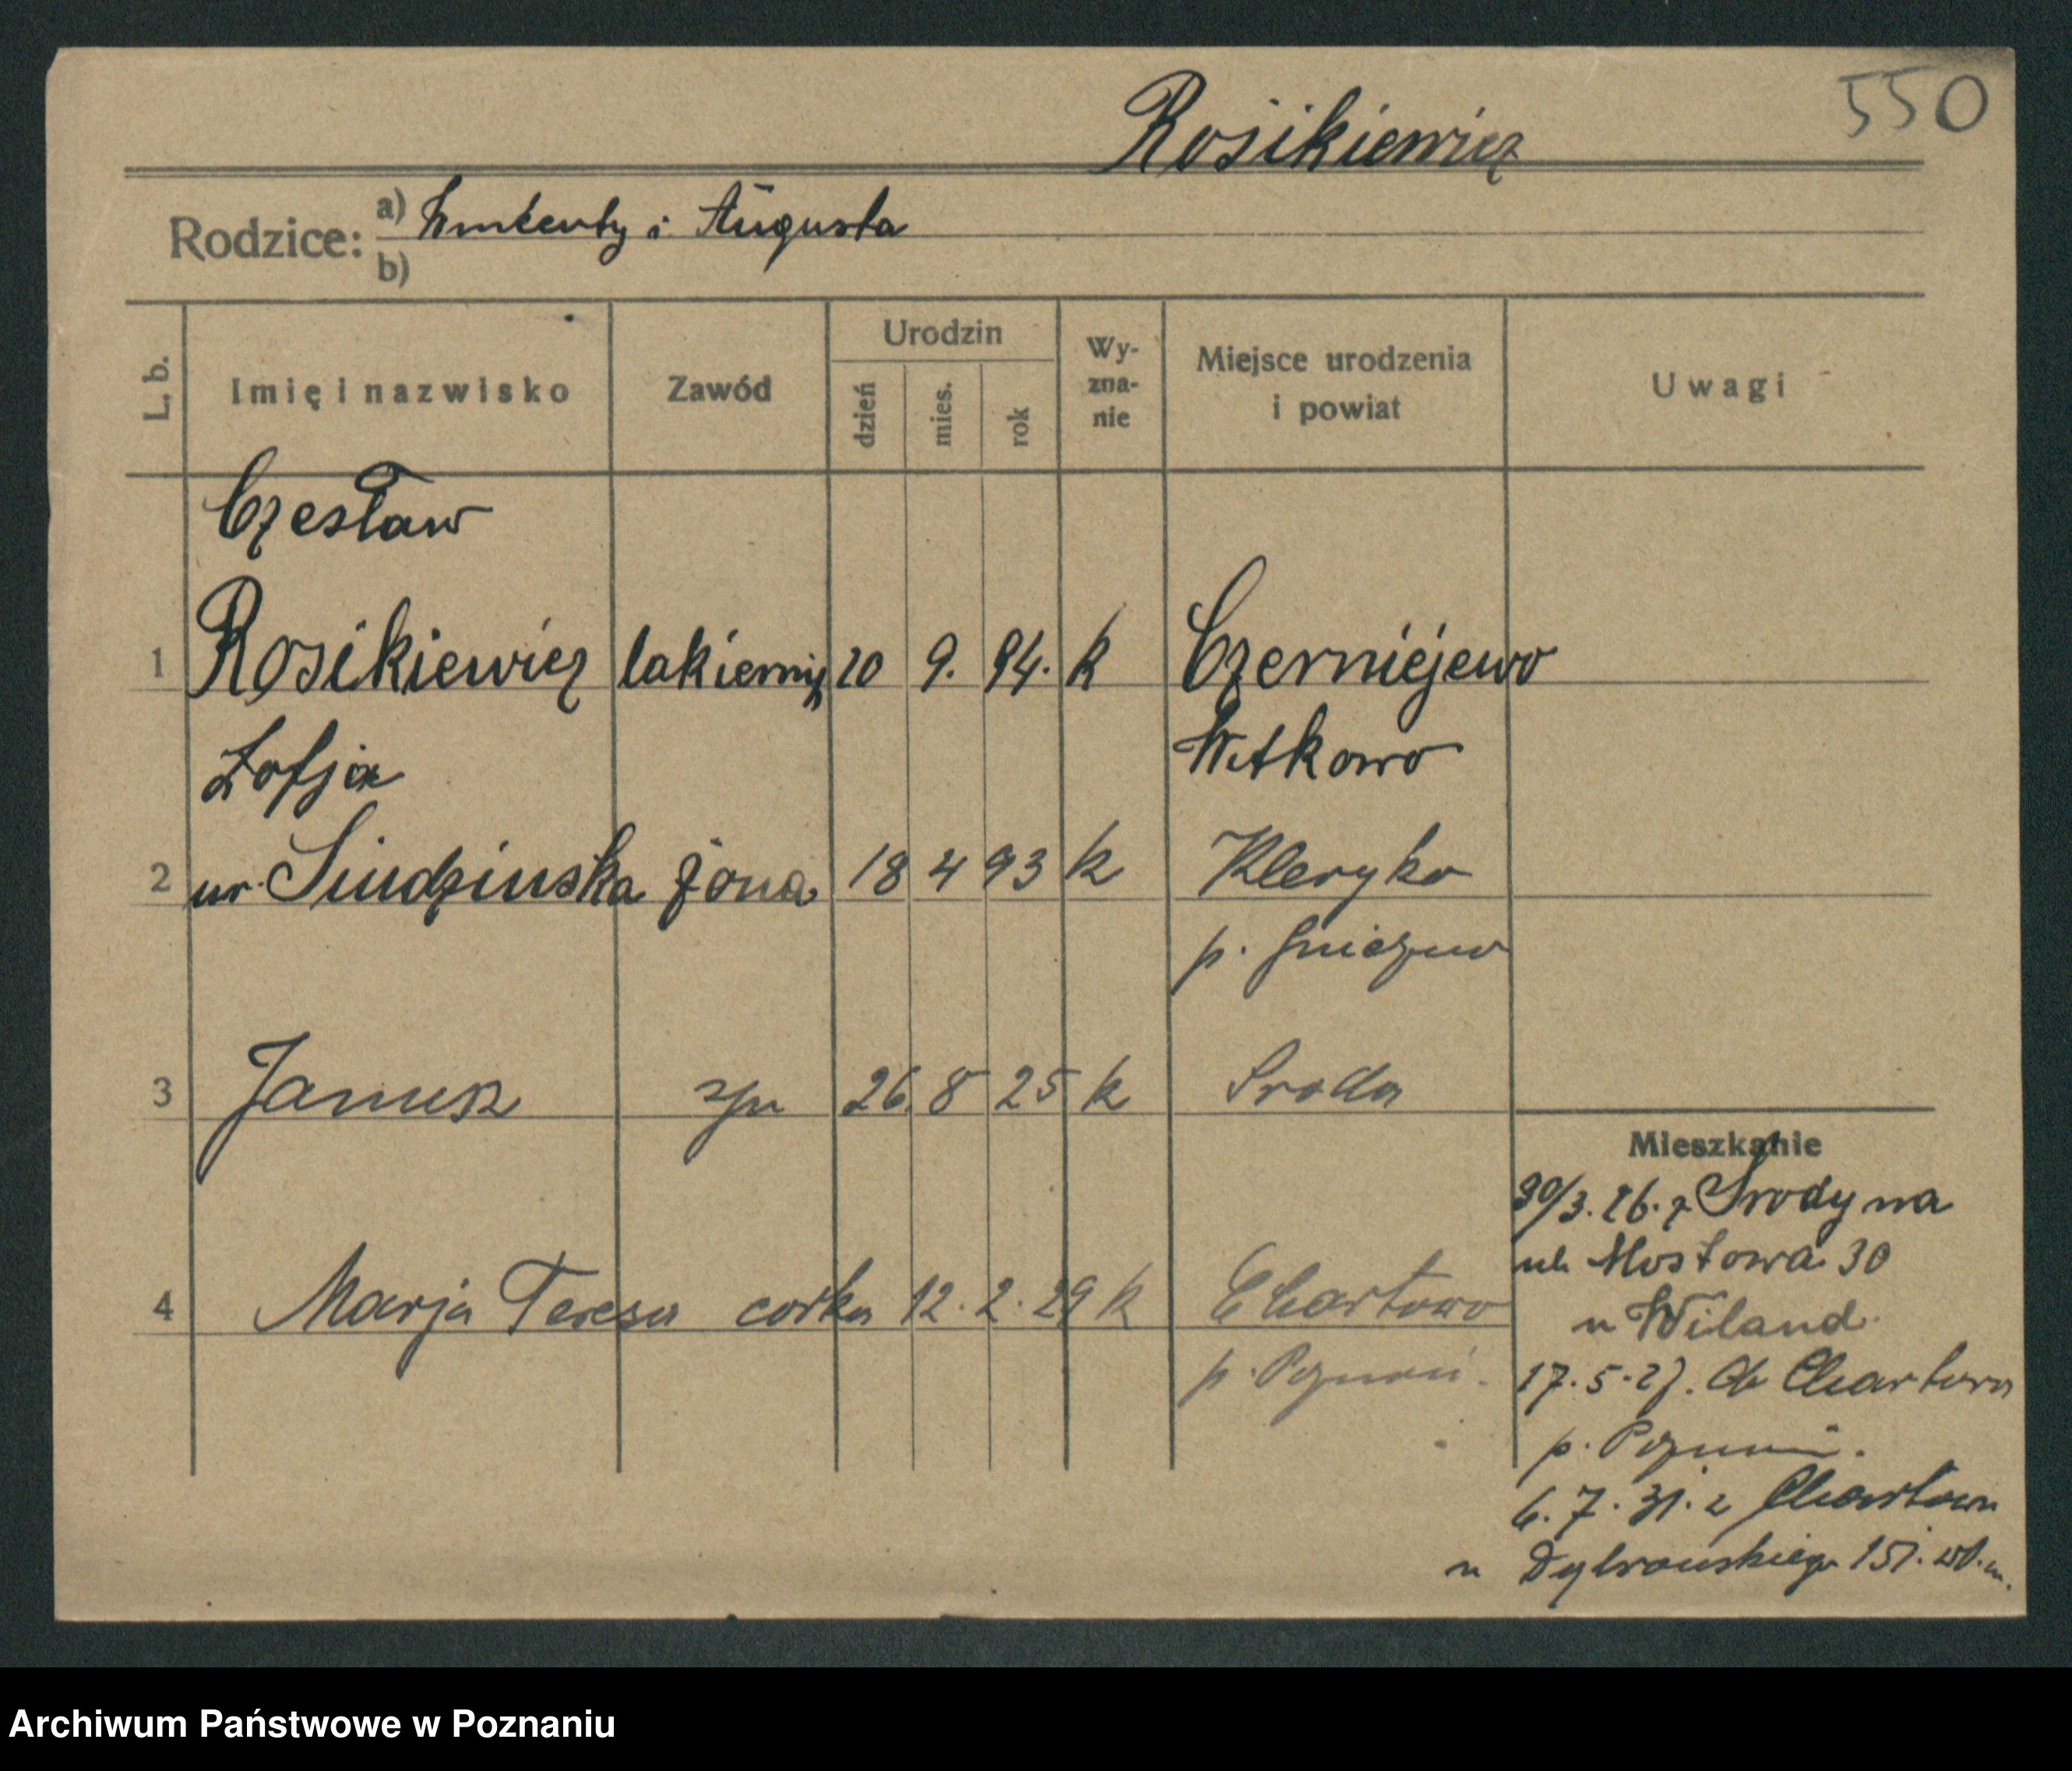 550
Rosikiewicz
Rodzice: a) Wincenty i Augusta
b)
L. b. Imię i nazwisko Zawód Urodzin dzień mies. rok Wy-zna-nie Miejsce urodzenia i powiat Uwagi
Czesław
1 Rosikiewicz lakiernik 20 9. 94. k Czerniejewo
Zofja Witkowo
2 ur. Siudzinska żona 18 4 93 k Klecyko
p. Gniezno
3 Janusz syn 26. 8 25 k Sroda
Mieszkanie
30/3. 26. z Srody na
ul. Mostowa 30
4 Marja Teresa corka 12. 2. 29 k Chartowo
u Wiland.
p. Poznań.
17. 5. 27. do Chartowa
p. Poznań.
6. 7. 31. z Chartowa
Dąbrowskiego
Archiwum Państwowe w Poznaniu